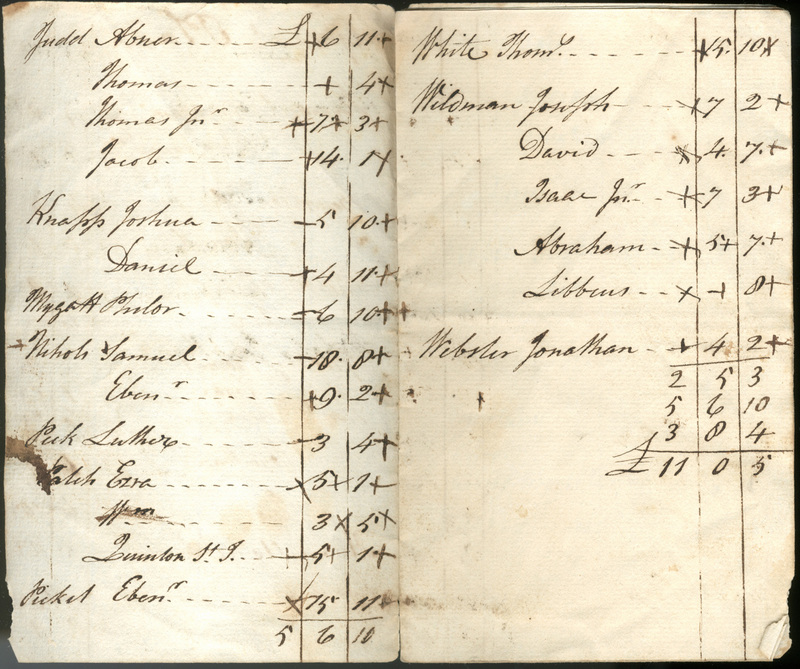 Judd Abner £ 6 11
Thomas 4
Thomas Jnr 7 3
Jacob 14 1
Knapp Joshua 5 10
Daniel 4 11
Mygatt Philor 6 10
Nichols Samuel 18 8
Ebenr 9 2
Peck Luther 3 4
Patch Ezra 5 1
Wm 3 5
Quinton St J. 5 1
Picket Ebenr 15 11
5 6 10
White Thoms 15 10
Wildman Joseph 7 2
David 4 7
Isaac Jnr 7 3
Abraham 5 7
Libbeus 8
Webster Jonathan 4 2
2 5 3
5 6 10
3 8 4
£ 11 0 5